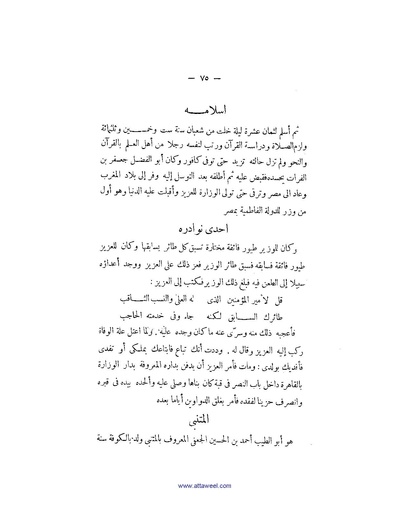 — ٧٥ —
اسلامــــه
ثم أسلم لثمان عشرة ليلة خلت من شعبان سنة ست وخمسين وثلثمائة
ولزم الصلاة ودراسة القرآن ورتب لنفسه رجلا من أهل العلم بالقرآن
والنحو ولم تزل حالته تزيد حتى توفى كافور وكان أبو الفضل جعفر بن
الفرات يحسده فقبض عليه ثم أطلقه بعد التوسل إليه وفر إلى بلاد المغرب
وعاد الى مصر وترقى حتى تولى الوزارة للعزيز وأقبلت عليه الدنيا وهو أول
من وزر للدولة الفاطمية بمصر
احدى نوادره
وكان للوزير طيور فائقة مختارة تسبق كل طائر يسابقها وكان للعزيز
طيور فائقة فسابقه فسبق طائر الوزير فعز ذلك على العزيز ووجد أعداؤه
سبيلا إلى الطعن فيه فبلغ ذلك الوزير فكتب إلى العزيز :
قل لأمير المؤمنين الذى له العلى والنسب الثاقب
طائرك السابق لكنه جاء وفى خدمته الحاجب
فأعجبه ذلك منه وسرى عنه ما كان وجده عليه. ولما اعتل علة الوفاة
ركب إليه العزيز وقال له . وددت أنك تباع فابتاعك بملكى أو تفدى
فأفديك بولدى : ومات فأمر العزيز أن يدفن بداره المعروفة بدار الوزارة
بالقاهرة داخل باب النصر فى قبة كان بناها وصلى عليه وألحده بيده فى قبره
وانصرف حزينا لفقده فأمر بغلق الدواوين أياما بعده
المتنبى
هو أبو الطيب أحمد بن الحسين الجعفى المعروف بالمتنبى ولد بالكوفة سنة
www.attaweel.com